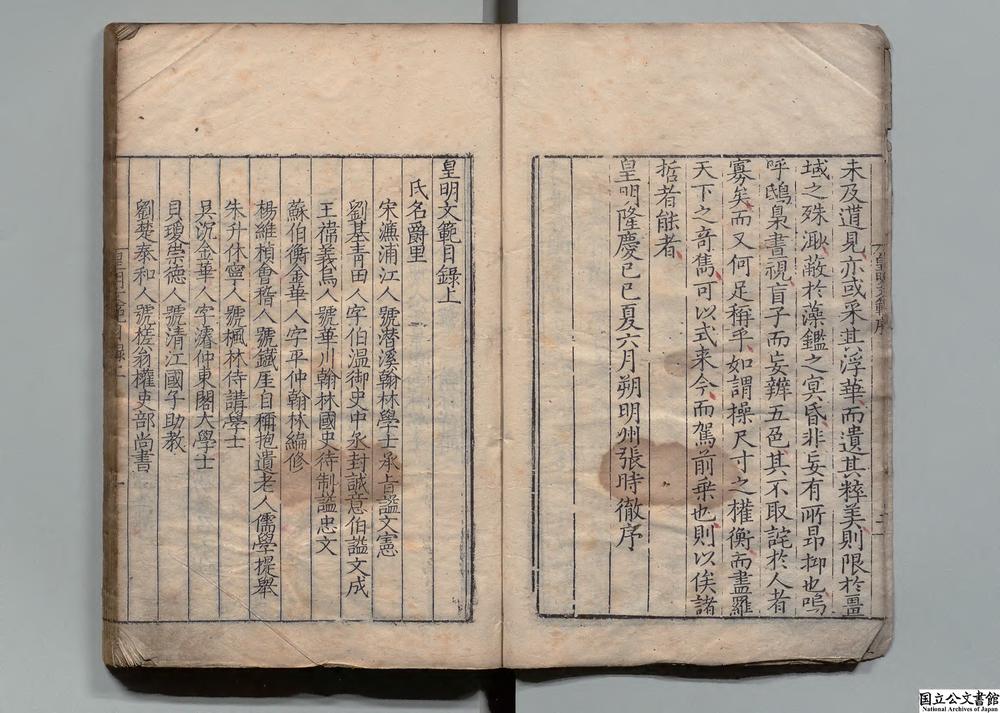 未及道見亦或采其浮華而遺其粹美則限於畺
域之殊溺蔽於藻鑑之㝠昏非妄有所昂抑也嗚
呼鴟梟晝視盲子而妄辨五色其不取詫於人者
寡矣而又何足稱乎如謂操尺寸之權衡而盡羅
天下之奇雋可以式來今而駕前乘也則以俟諸
哲者能者
皇明隆慶己巳夏六月朔明州張時徹序
皇明文範序
皇明文範目錄上
氏名爵里
宋濂浦江人號潛溪翰林學士承旨謚文憲
劉基青田人字伯溫御史中丞封誠意伯謚文成
王禕義烏人號華川翰林國史待制謚忠文
蘇伯衡金華人字平仲翰林編修
楊維楨會稽人號鐵厓自稱抱遺老人儒學提舉
朱升休寧人號楓林侍講學士
吳沉金華人字濬仲東閣大學士
貝瓊崇德人號清江國子助教
劉楚泰和人號槎翁權吏部尚書
国立公文書館
National Archives of Japan